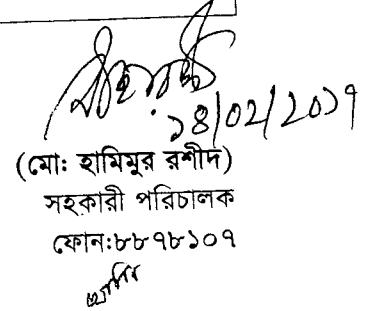 ১৪/০২/২০১৭
(মো: হামিমুর রশীদ)
সহকারী পরিচালক
ফোন:৮৮৭৮১০৭